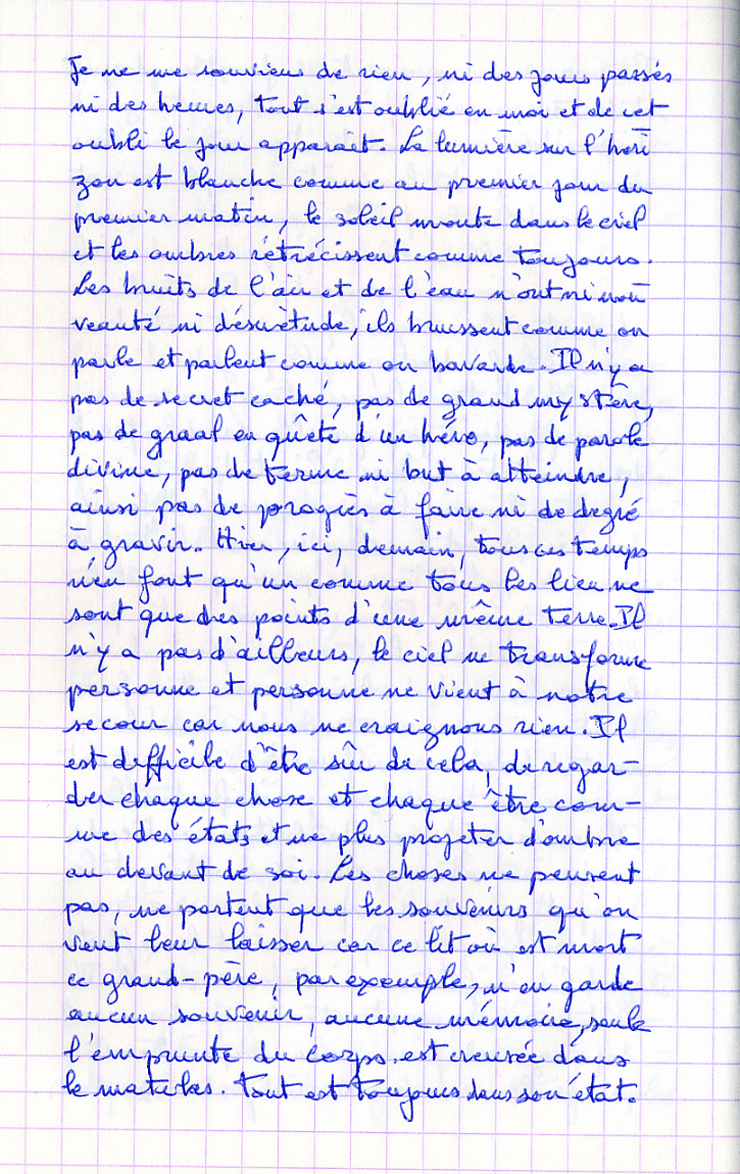 Je ne me souviens de rien, ni des jours passés
ni des heures, tout s'est oublié en moi et de cet
oubli le jour apparaît. La lumière sur l'hori
zon est blanche comme au premier jour du
premier matin, le soleil monte dans le ciel
et les ombres rétrécissent comme toujours.
Les bruits de l'air et de l'eau n'ont ni nou
veauté ni désuétude, ils bruissent comme on
parle et parlent comme on bavarde. Il n'y a
pas de secret caché, pas de grand mystère,
pas de graal en quête d'un héro, pas de parole
divine, pas de terme ni but à atteindre,
ainsi pas de progrès à faire ni de degré
à gravir. Hier, ici, demain, tous ces temps
n'en font qu'un comme tous les lieu ne
sont que des points d'une même terre. Il
n'y a pas d'ailleurs, le ciel ne transforme
personne et personne ne vient à notre
secour car nous ne craignons rien. Il
est difficile d'être sûr de cela, de regar-
der chaque chose et chaque être com-
me des états et ne plus projeter d'ombre
au devant de soi. Les choses ne pensent
pas, ne portent que les souvenirs qu'on
veut leur laisser car ce lit où est mort
ce grand-père, par exemple, n'en garde
aucun souvenir, aucune mémoire, seule
l'emprunte du corps est creusée dans
le matelas. Tout est toujours dans son état.